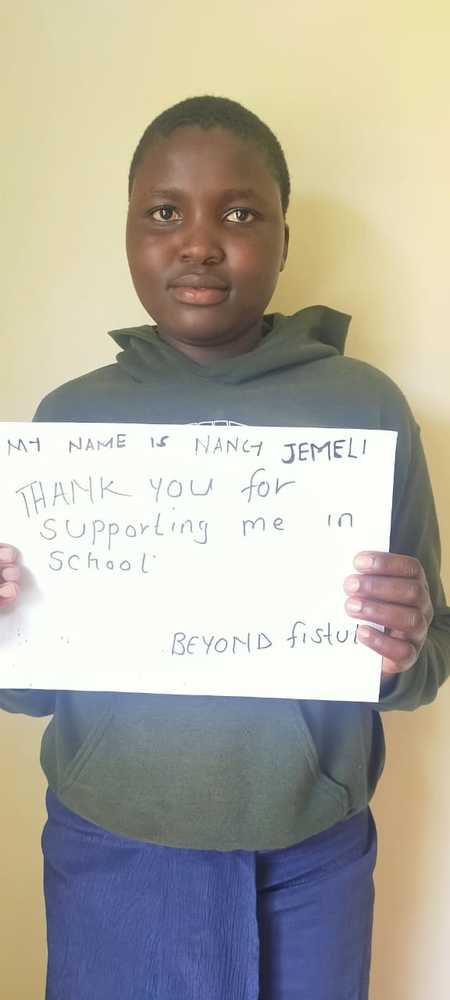 MY NAME IS NANCY JEMELI
THANK YOU for
supporting me in
school
BEYOND fistul